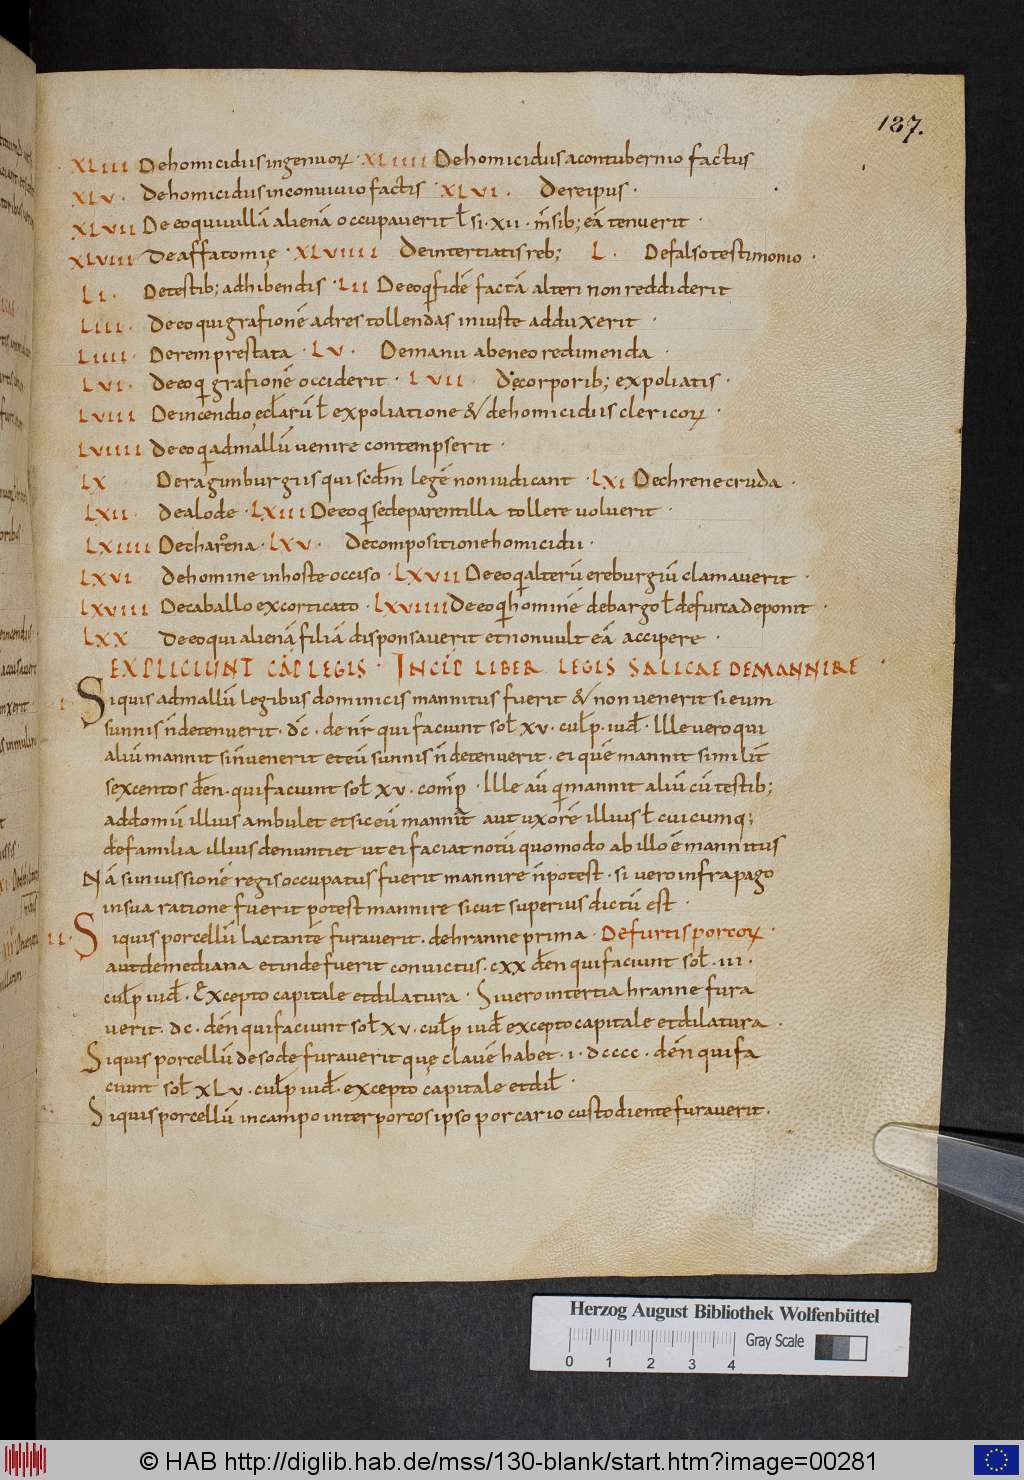 187.
XLIII De homicidiis ingenuoꝝ · XLIIII De homicidiis a contubernio factis
XLV · De homicidiis in conuiuio factis · XLVI · De reipus ·
XLVII De eo qui uillā alienā occupauerit ł si · XII · m̄sib; eā tenuerit ·
XLVIII De affatomię · XLVIIII De intertiatis reb; L · De falso testimonio ·
LI · De testib; adhibendis · LII De eo q̄ fidē factā alteri non reddiderit
LIII · De eo qui grafionē ad res tollendas iniuste adduxerit ·
LIIII · De rem prestata · LV · De manu ab eneo redimenda ·
LVI · De eo q̄ grafionē occiderit · LVII · De corporib; expoliatis ·
LVIII De incendio ecl̄arū ł expoliatione & de homicidiis clericoꝝ ·
LVIIII De eo q̄ ad mallū uenire contempserit ·
LX De raginburgiis qui scdm̄ legē non iudicant · LXI De chrenecruda ·
LXII · De alode · LXIII De eo q̄ se de parentilla tollere uoluerit ·
LXIIII De charœna · LXV · De compositione homicidii ·
LXVI De homine in hoste occiso · LXVII De eo q̄ alterū ereburgiū clamauerit ·
LXVIII De caballo excorticato · LXVIIII De eo q̄ hominē de bargo ł de furca deponit ·
LXX De eo qui alienā filiā disponsauerit et non uult eā accipere ·
EXPLICIUNT CAP̄ LEGIS · INCIP̄ LIBER LEGIS SALICAE DE MANNIRE ·
I · Siquis ad mallū legibus dominicis mannitus fuerit & non uenerit si eum
sunnis n̄ detenuerit · dc · den̄r qui faciunt sol̄ xv · cul̄p · iud̄ · Ille uero qui
aliū mannit si n̄ uenerit et eū sunnis n̄ detenuerit · ei quē mannit similit̄
sexcentos den̄ · qui faciunt sol̄ xv · comp̄ · Ille aū q̄ mannit aliū cū testib;
ad domū illius ambulet et sic eū mannit aut uxorē illius ł cuicumq;
de familia illius denuntiet ut ei faciat notū quomodo ab illo ē mannitus
Nā si in iussionē regis occupatus fuerit mannire n̄ potest · si uero infra pago
in sua ratione fuerit potest mannire sicut superius dictū est ·
II · Siquis porcellū lactantē furauerit · de hranne prima · De furtis porcoꝝ ·
aut de mediana et inde fuerit conuictus · cxx den̄ qui faciunt sol̄ · iii ·
cul̄p iud̄ · Excepto capitale et dilatura · Si uero in tertia hranne fura
uerit · dc · den̄ qui faciunt sol̄ xv · cul̄p iud̄ excepto capitale et dilatura ·
Siquis porcellū de sode furauerit quę clauē habet · i · dcccc · den̄ qui fa
ciunt sol̄ xLv · cul̄p iud̄ · excepto capitale et dil̄ ·
Siquis porcellū in campo inter porcos ipso porcario custodiente furauerit ·
Herzog August Bibliothek Wolfenbüttel
Gray Scale
0 1 2 3 4
© HAB http://diglib.hab.de/mss/130-blank/start.htm?image=00281